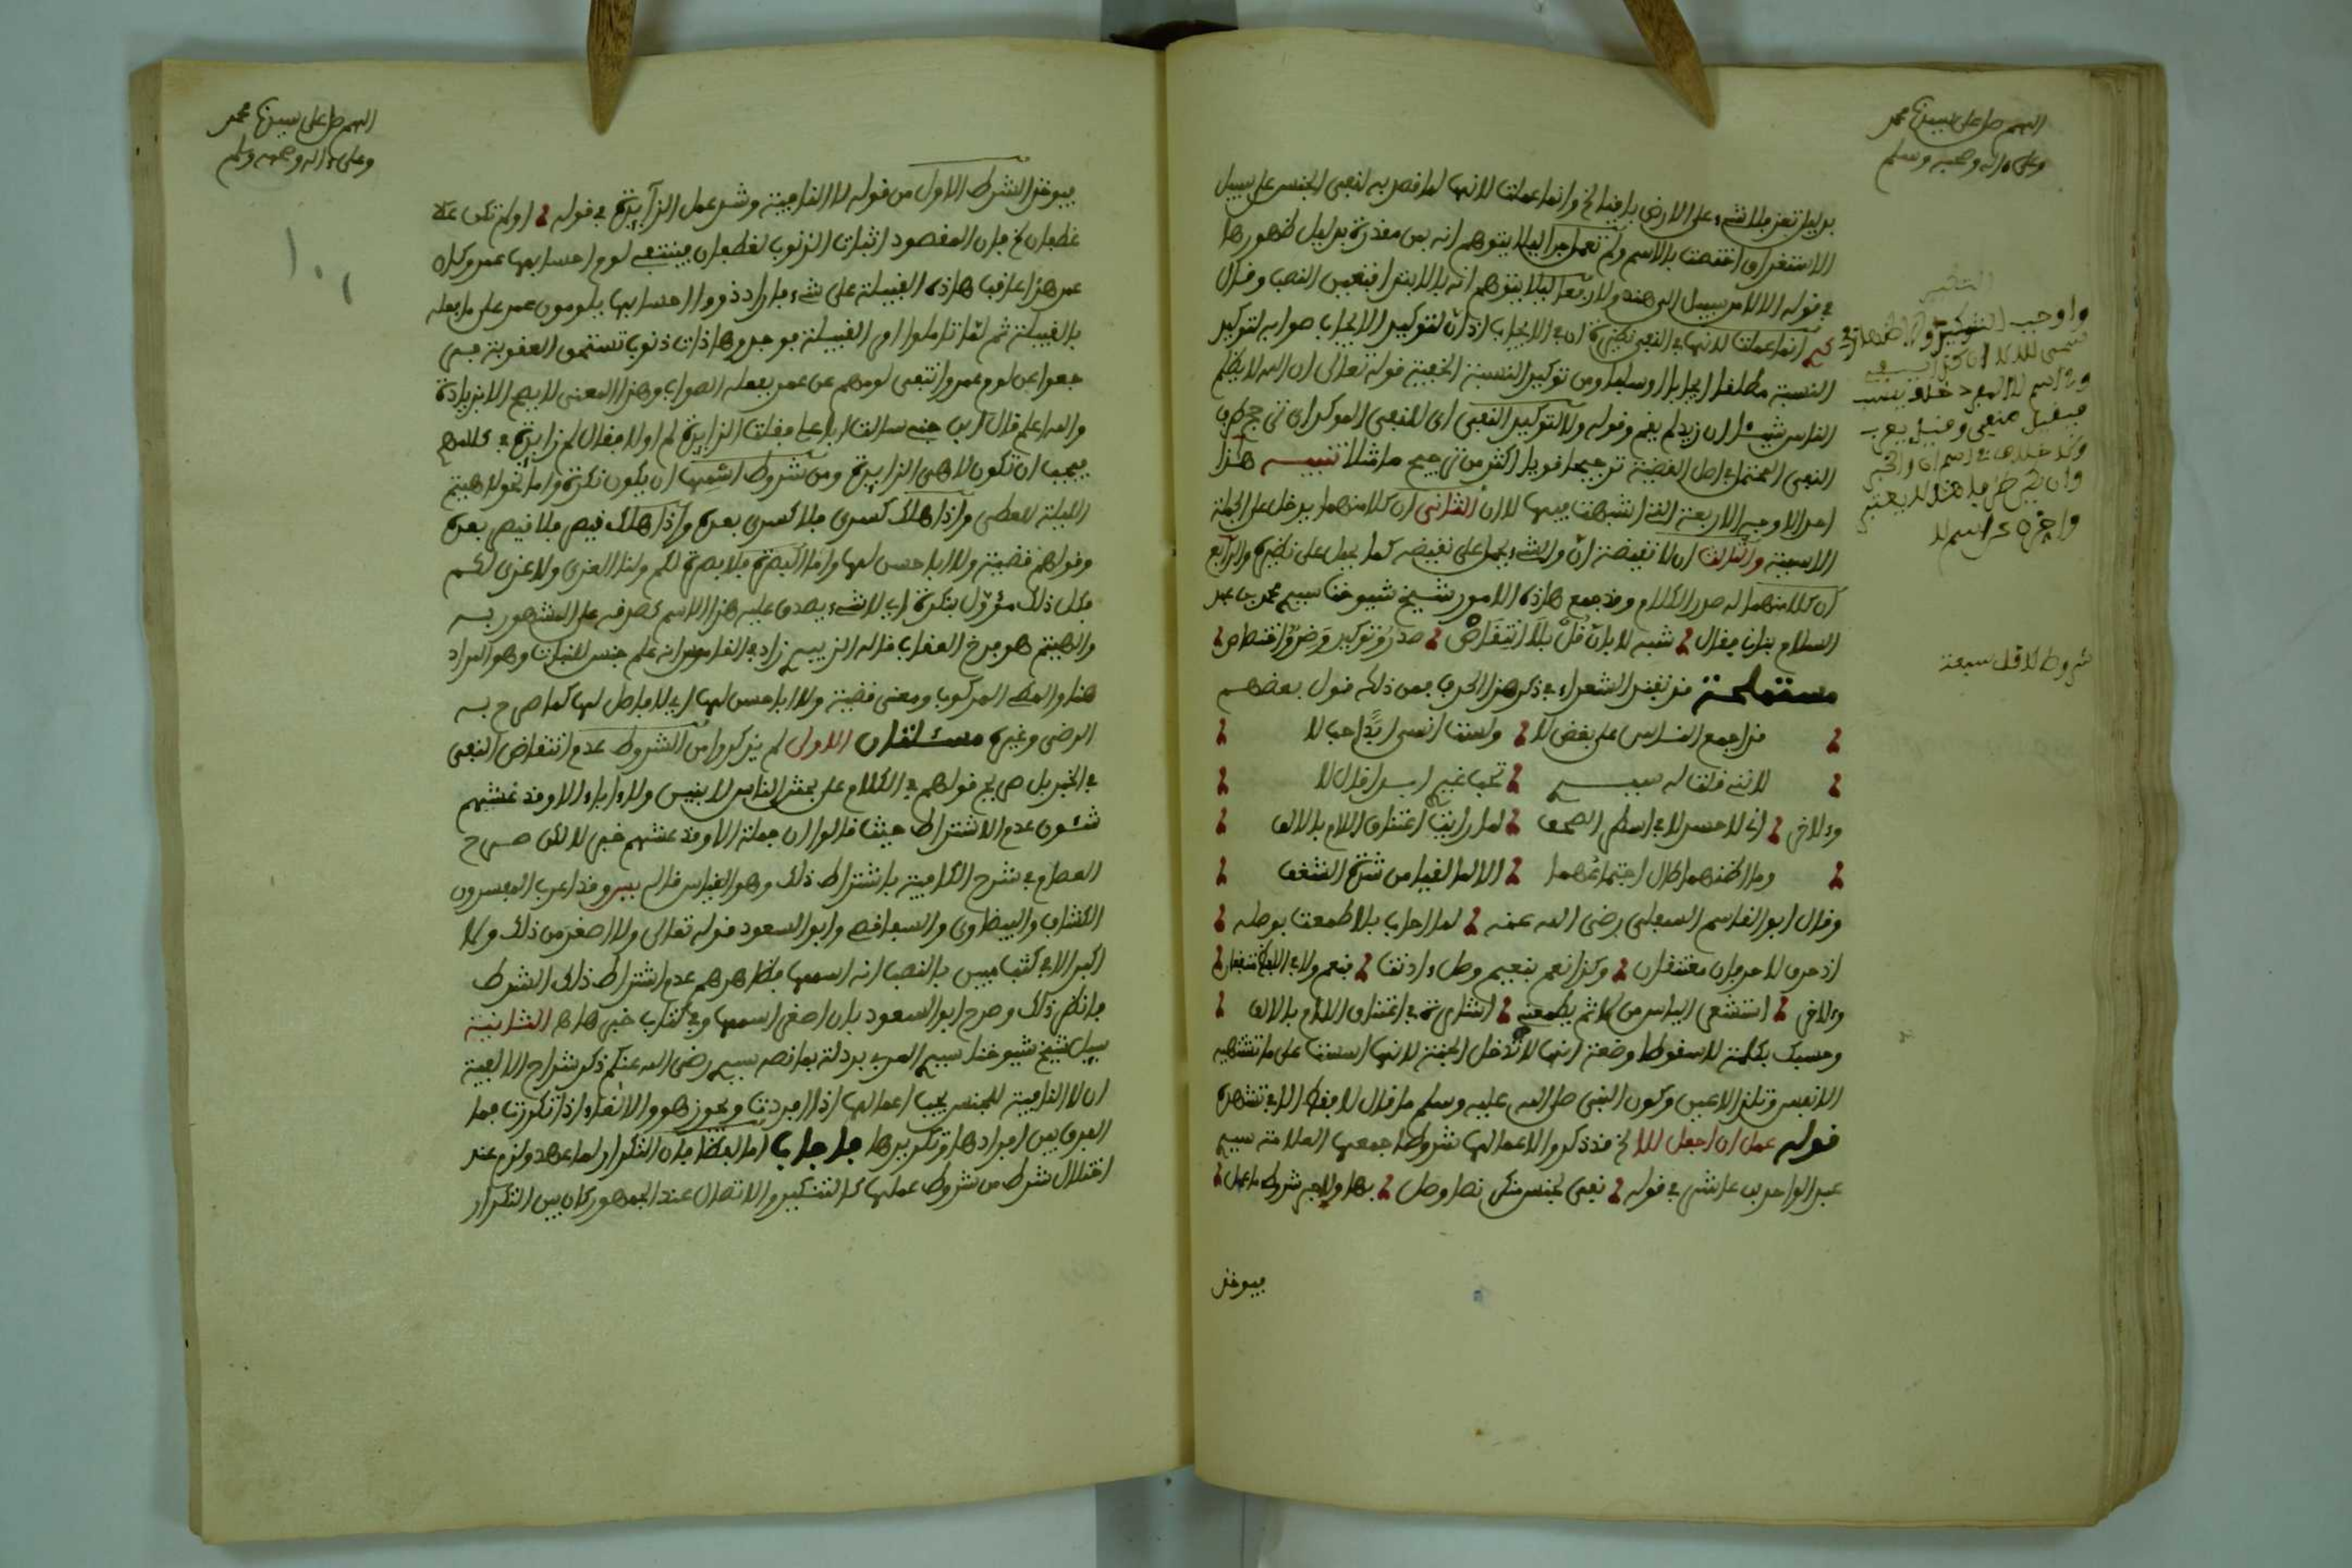 اللهم صل على سيدنا محمد
وعلى ءاله وصحبه وسلم
بدليل تعز فلا شيء على الارض باقيا الخ وانما عملت لانها لما قصد بها نفي الجنس على سبيل
الاستغراق اختصت بالاسم ولم تعمل جرا ليلا يتوهم انه بمن مقدرة بدليل ظهورها
في قوله الا لا من سبيل الى هند ولا رفعا ليلا يتوهم انه بالابتدا فتعين النصب وقال
انما عملت لانها في النفي نظيرة ان في الايجاب اذ ان لتوكيد الايجاب صوابه لتوكيد
النسبة مطلقا ايجابا او سلبا ومن توكيد النسبة المنفية قوله تعالى ان الله لا يظلم
الناس شيئا ان زيدا لم يقم وقوله ولا لتوكيد النفي اى للنفي الموكد اى ترجح طرف
النفي المحتمل في اصل القضية ترجيحا قويا اكثر من ترجيح ما مثلا تنبيه هذا
احد الاوجه الاربعة التي اشبهت فيها لا ان الثاني ان كلا منهما يدخل على الجملة
الاسمية والثالث ان لا نقيضة ان والشيء يحمل على نقيضه كما يحمل على نظيره والرابع
ان كلا منهما له صدر الكلام وقد جمع هاذه الامور شيخ شيوخنا سيدي محمد بن عبد
السلام بناني فقال شبه لا بان قل بلا انتقاض صدر وتوكيد وضد واختصاص
مستملحة قد تفنن الشعراء في ذكر هذا الحرف فمن ذلك قول بعضهم
قد اجمع الناس على بغض لا ولست انسى ابدا حب لا
لانني قلت له سيدي تحب غيري ابدا قال لا
وءلاخر اني لاحسد لا في اسطر الصحف لما رايت اعتناق اللام بالالف
وما اظنهما طال اجتماعهما الا لما لقيا من شدة الشغف
وقال ابو القاسم السهيلي رضي الله عنه لما اجاب بلا طمعت بوصله
اذ حرف لا حرفان معتنقان وكذا نعم بنعيم وصل ءاذنت فنعم ولا في اللفظ متفقان
وءلاخر استشعر الياس من لا ثم يطمعني اشارة في اعتناق اللام بالالف
وحسبك بكلمة لا سقوطا وضعة انها لا تدخل الجنة لانها اسست على ما تشتهيه
الانفس وتلذ الاعين وكون النبي صلى الله عليه وسلم ما قال لا قط الا في تشهده
قوله عمل ان اجعل للا الخ قد ذكروا لاعمالها شروطا جمعها العلامة سيدي
عبد الواحد بن عاشر في قوله نفي لجنس منكر نصا وصل بها ولا جر شروط ما عمل
فيوخذ
شروط لا قل سبعة
اللهم صل على سيدنا محمد
وعلى ءاله وصحبه وسلم
فيوخذ الشرط الاول من قوله لا النافية وشذ عمل الزايدة في قوله لو لم تكن غلا
غطفان الخ فان المقصود اثبات الذنوب لغطفان فينتفي لوم احسابها عمر وكان
عمر هذا عاقب هاذه القبيلة على شيء فاراد ذووا احسابها يلومون عمر على ما فعله
بالقبيلة ثم لما تاملوا امر القبيلة فوجدوها ذات ذنوب تستحق العقوبة فهي
جعوا عن لوم عمر وانتفى لومهم عن عمر بفعله الصواب وهذا المعنى لا يصح الا بزيادة
والله اعلم قال ابن جني سالت ابا علي فقلت الزايدة لم اولا فقال لم زايدة في كلامهم
فيجب ان تكون لا هي الزايدة ومن شروط اسمها ان يكون نكرة واما نحو لا هيثم
الليلة للمطي واذا هلك كسرى فلا كسرى بعده واذا هلك قيصر فلا قيصر بعده
وقولهم قضية ولا ابا حسن لها واما البصرة فلا بصرة لكم ولنا العزى ولا عزى لكم
فكل ذلك مؤول بنكرة اي لا شيء يصدق عليه هذا الاسم كصدقه على المشهور به
والهيثم هو فرخ العقاب قاله الزبيدي زاد في القاموس انه علم جنس للنبات وهو المراد
هنا والمطي المركوب ومعنى قضية ولا ابا حسن لها اي لا فاصل لها كما صرح به
الرضي وغيره مسئلتان الاولى لم يذكروا من الشروط عدم انتقاض النفي
في الخبر بل صريح قولهم في الكلام على يحشر الناس لا بنين ولا ءاباء الا وقد عنتهم
شئون عدم الاشتراط حيث قالوا ان جملة الا وقد عنتهم خبر لا لكن صرح
العصام في شرح الكافية باشتراط ذلك وهو القياس قاله يس وقد اعرب المفسرون
الكشاف والبيضاوي والسفاقسي وابو السعود قوله تعالى ولا اصغر من ذلك ولا
اكبر الا في كتاب مبين بالنصب انه اسمها فظاهرهم عدم اشتراط ذلك الشرط
فانظر ذلك وصرح ابو السعود بان اصغر اسمها وفي كتاب خبرها ها الثانية
سيل شيخ شيوخنا سيدي العربي بردلة بما نصه سيدي رضي الله عنكم ذكر شراح الالفية
ان لا النافية للجنس يجب اعمالها اذا افردت ويجوز هو والالغاء اذا تكررت فما
الفرق بين افرادها وتكريرها فاجاب اما لفظا فان التكرار لما عهد ولزم عند
اختلال شرط من شروط عملها كالتنكير والاتصال عند الجمهور كان بين التكرار